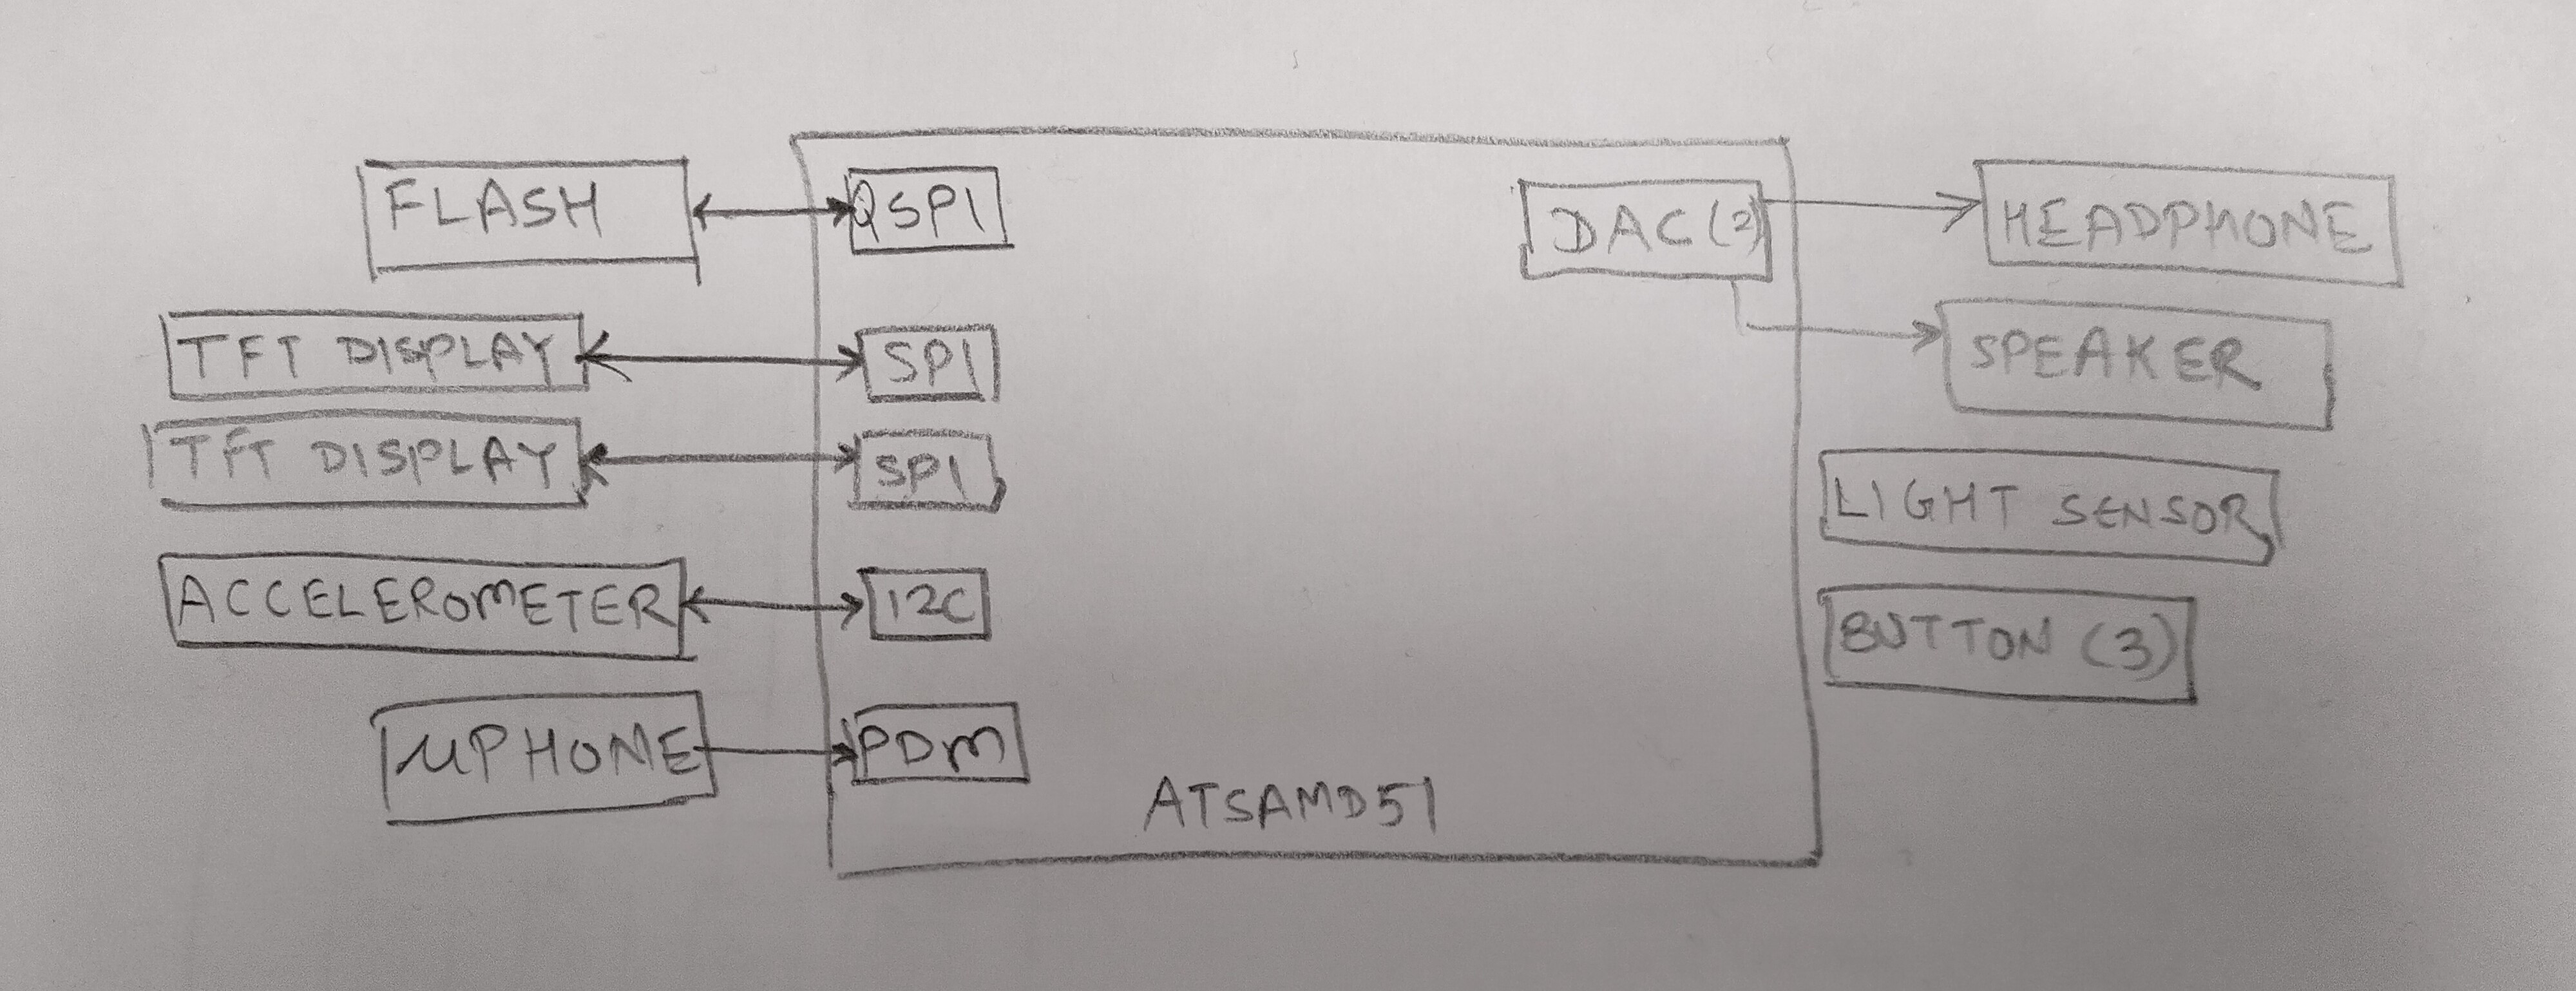 FLASH
QSPI
TFT DISPLAY
SPI
TFT DISPLAY
SPI
ACCELEROMETER
I2C
μPHONE
PDM
ATSAMD51
DAC (2)
HEADPHONE
SPEAKER
LIGHT SENSOR
BUTTON (3)